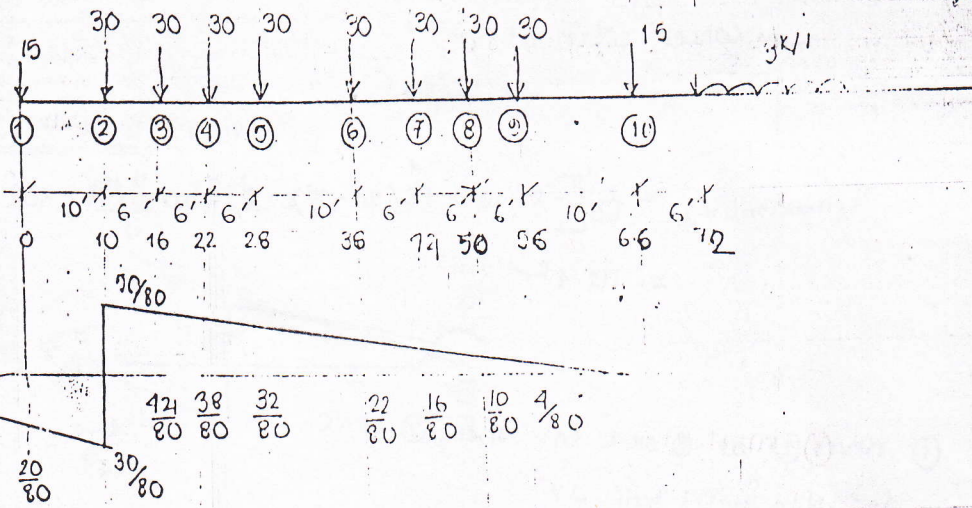 15 30 30 30 30 30 30 30 30 15
3K/1
1 2 3 4 5 6 7 8 9 10
10' 6' 6' 6' 10' 6' 6' 6' 10' 6'
0 10 16 22 28 38 44 50 56 66 72
50/80
44/80 38/80 32/80 22/80 16/80 10/80 4/80
20/80 30/80